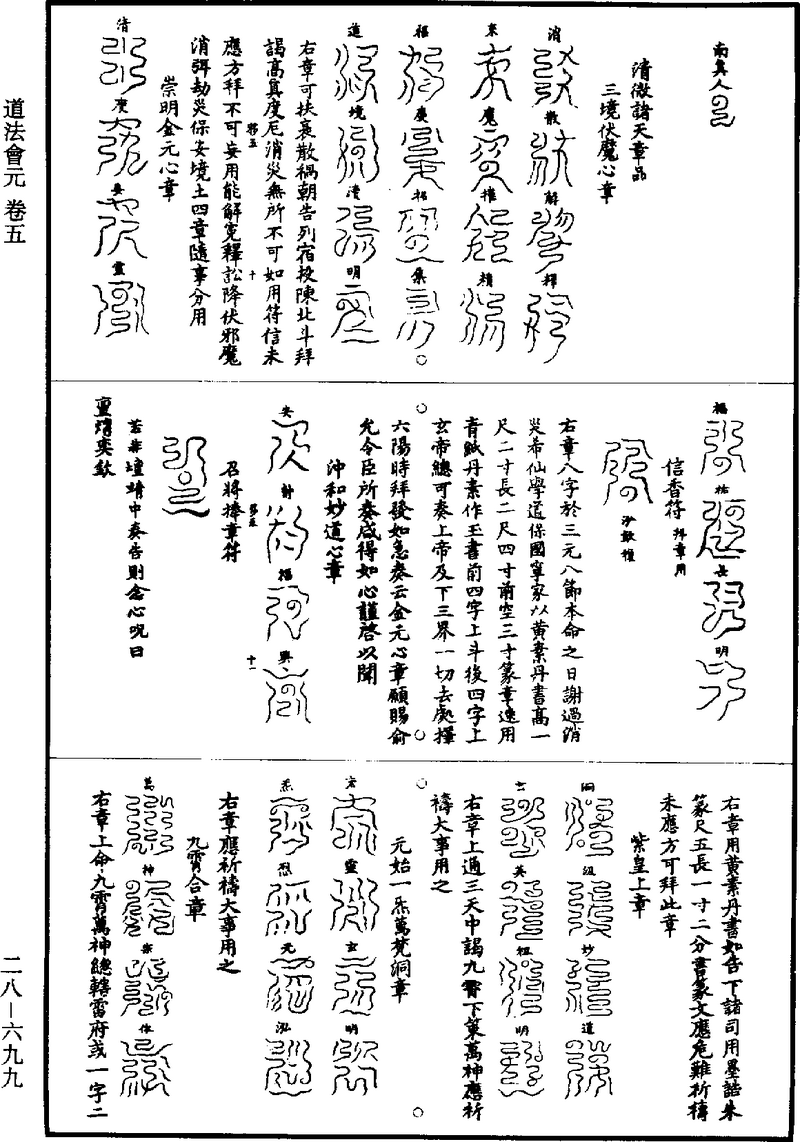 道法會元 卷五
二八—六九九
南真人
清微諸天章品
三境伏魔心章
消 散 解 釋
東 魔 摧 精
福 庚 招 集
道 境 清 明
右章可扶衰散禍朝告列宿投陳北斗拜
謁高真度厄消災無所不可如用符信未
應方拜不可妄用能解冤釋訟降伏邪魔
消弭劫災保安境土四章隨事分用
第五
十
崇明金元心章
清 度 安 靈
福 祐 長 明
信香符 拜章用
右章八字於三元八節本命之日謝過消
災希仙學道保國寧家以黃素丹書高一
尺二寸長二尺四寸前空三寸篆章速用
青紙丹素作玉書前四字上斗後四字上
玄帝總可奏上帝及下三界一切去處擇
六陽時拜發如急奏云金元心章願賜俞
允令臣所奏咸得如心謹啓以聞
沖和妙道心章
安 財 福 興
第五
十一
召將捧章符
若非壇靖中奏告則念心呪曰
亶靖奕欽
右章用黃素丹書如告下諸司用墨誥朱
篆尺五長一寸二分書篆文應危難祈禱
未應方可拜此章
紫皇上章
洞 妙 道
玄 英 明
右章上通三天中謁九霄下策萬神應祈
禱大事用之
元始一炁萬梵洞章
宏 靈 玄 明
炁 烈 元 泓
右章應祈禱大事用之
九霄合章
萬 神
右章上命九霄萬神總轄雷府或一字二